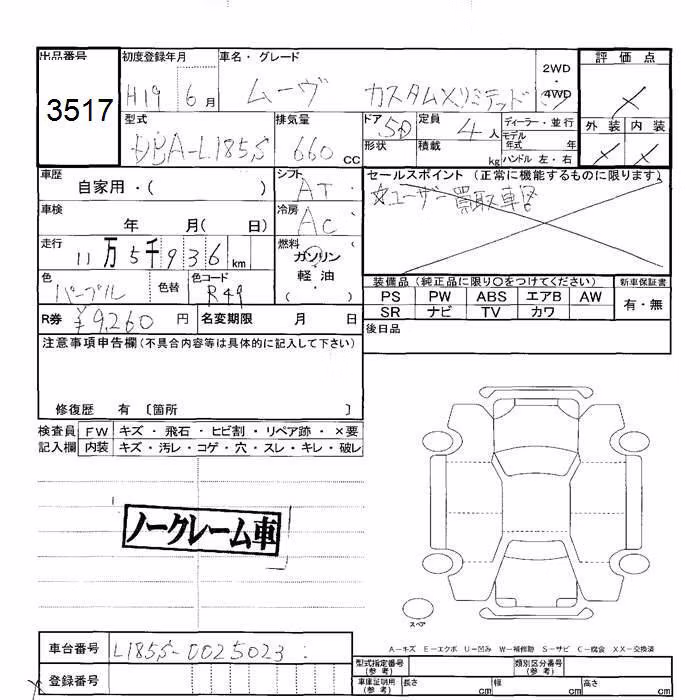 出品番号
3517
初度登録年月
H19 6月
車名・グレード
ムーヴ カスタムXリミテッド
2WD
4WD
評価点
外装 内装
型式
DBA-L185S
排気量
660 CC
ドア 5D
形状
定員 4人
積載 kg
ディーラー・並行
モデル年式 年
ハンドル 左・右
車歴
自家用・( )
シフト
AT
セールスポイント(正常に機能するものに限ります)
☆ユーザー買取車
車検
年 月( 日)
冷房
AC
走行
11万5千936km
燃料
ガソリン
軽油
( )
色
パープル
色替
色コード
R49
装備品(純正品に限り○をつけてください)
新車保証書
PS PW ABS エアB AW
SR ナビ TV カワ
有・無
R券 ¥9,260円
名変期限 月 日
後日品
注意事項申告欄(不具合内容等は具体的に記入して下さい)
修復歴 有 〔箇所 〕
検査員記入欄
FW キズ・飛石・ヒビ割・リペア跡・×要
内装 キズ・汚レ・コゲ・穴・スレ・キレ・破レ
ノークレーム車
スペア
A-キズ E-エクボ U-凹み W-補修跡 S-サビ C-腐食 XX-交換済
車台番号 L185S-0025023
登録番号
型式指定番号(参考)
類別区分番号(参考)
車庫証明用(参考) 長さ cm 幅 cm 高さ cm